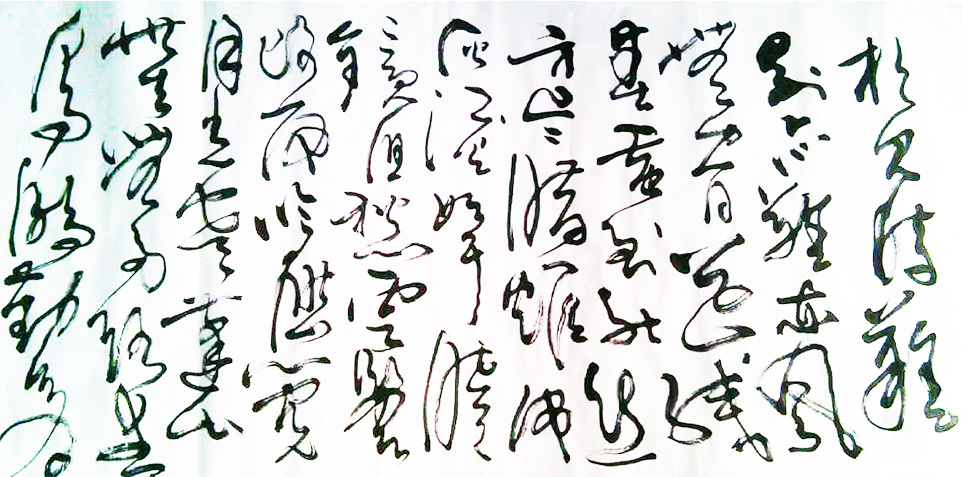 相見時難
別亦難東風
無力百花殘
春蠶到死絲
方盡蠟炬成
灰淚始乾曉
鏡但愁雲鬢
改夜吟應覺
月光寒蓬山
此去無多路青
鳥殷勤為